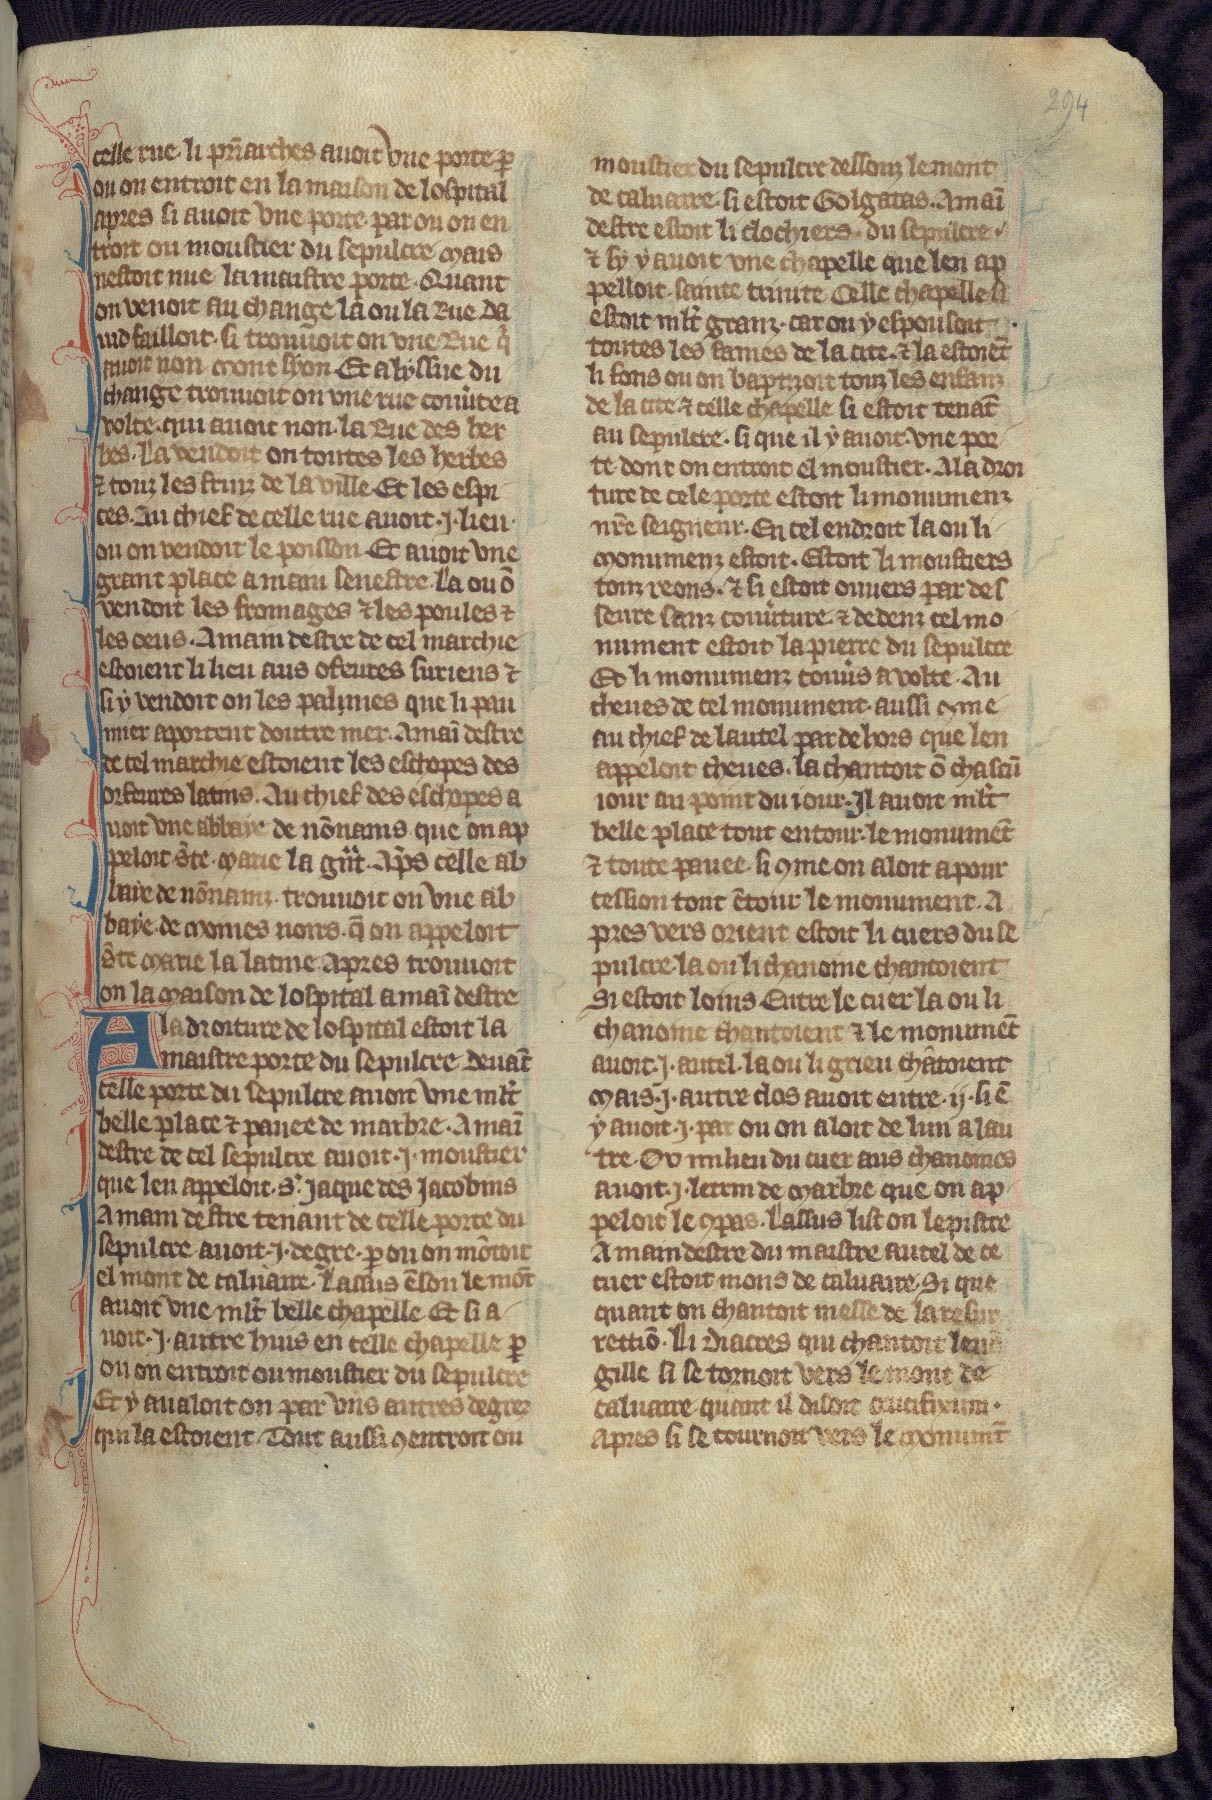 294
celle rue· li pr̄iarches auoit vne porte ꝑ
ou on entroit en la maison de lospital
apres si auoit vne porte par ou on en
troit ou moustier du sepulcre mais
nestoit mie la maistre porte· Quant
on venoit au change la ou la Rue Da
uid failloit· si trouuoit on vne Rue q̄
auoit non mont syon· Et a lyssue du
change trouuoit on vne rue couu̍te a
volte· qui auoit non· la Rue des her
bes· La vendoit on toutes les herbes
⁊ touz les fruiz de la ville Et les espi
ces· Au chief de celle rue auoit ·j· lieu·
ou on vendoit le poisson· Et auoit vne
grant place a main senestre· La ou ō
vendoit les fromages ⁊ les poules ⁊
les oeus· A main destre de cel marchie
estoient li lieu aus ofeures suriens ⁊
si y vendoit on les palmes que li pau
mier aportent doutre mer· A mai̅ destre
de cel marchie estoient les eschopes des
orfeures latins· Au chief des eschopes a
uoit vne abbaye de nōnains· que on ap
peloit ste· marie la gn̄t· Ap̄s celle ab
baye de nōnainz· trouuoit on vne ab
baye· de moines noirs· q̄ on appeloit
ste marie la latine Apres trouuoit
on la maison de lospital a mai̅ destre
A la droiture de lospital estoit la
maistre porte du sepulcre· deuāt
celle porte du sepulcre auoit vne ml̄t
belle place ⁊ pauee de marbre· A mai̅
destre de cel sepulcre auoit ·j· moustier
que len appeloit· S· iaque des iacobins
A main destre tenant de celle porte du
sepulcre· auoit ·j· degre· ꝑ ou on mōtoit
el mont de caluaire· Lassus ēson le mōt
auoit vne ml̄t belle chapelle Et si a
uoit ·j· autre huis en celle chapelle ꝑ
ou on entroit ou moustier du sepulcre
Et y aualoit on par vns autres degrez
qui la estoient· Tout aussi ꝯ entroit ou
moustier du sepulcre dessouz le mont
de caluaire· si estoit Golgatas· A mai̅
destre estoit li clochiers· du sepulcre·
⁊ sy y auoit vne chapelle que len ap
pelloit· sainte trinite Celle chapelle si
estoit ml̄t granz· car on y espousoit
toutes les fames de la cite· ⁊ la estoiēt
li fons ou on baptizoit touz les enfanz
de la cite· ⁊ celle chapelle si estoit tenāt
au sepulcre· si que il y auoit vne por
te dont on entroit el moustier· A la droi
ture de cele porte estoit li monumenz
nr̄e seigneur· En cel endroit la ou li
monumenz estoit· Estoit li moustiers
touz reons· ⁊ si estoit ouuers par des
seure sanz couu̍ture· ⁊ dedenz cel mo
nument estoit la pierre du sepulcre
Et li monumenz couu̍s a volte· Au
cheues de cel monument· aussi ꝯme
au chief de lautel par dehors que len
appeloit cheues· la chantoit ō chascū
iour au point du iour· Il auoit ml̄t
belle place tout entour· le monumēt
⁊ toute pauee· si ꝯme on aloit a pour
cession tout ētour le monument· A
pres vers orient estoit li cuers du se
pulcre· la ou li chanoine chantoient
Si estoit loins· Entre le cuer la ou li
chanoine chantoient ⁊ le monumēt
auoit ·j· autel· la ou li grieu chātoient
Mais ·j· autre clos auoit entre ·ij· si ē
y auoit ·j· par ou on aloit de lun a lau
tre· Ou milieu du cuer aus chanoines
auoit ·j· letrin de marbre que on ap
peloit le ꝯpas· Lassus list on lepistre
A main destre du maistre autel de ce
cuer estoit mons de caluaire· Si que
quant on chantoit messe de la resur
rectiō· Li diacres qui chantoit leuā
gille si se tornoit vers le mont de
caluaire quant il disoit crucifixum·
Apres si se tournoit vers le monumt̄